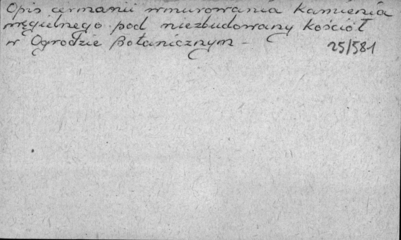 Opis cermonii wmurowania kamienia
węgielnego pod niezbudowany kościół
w Ogrodzie Botanicznym -
25/581